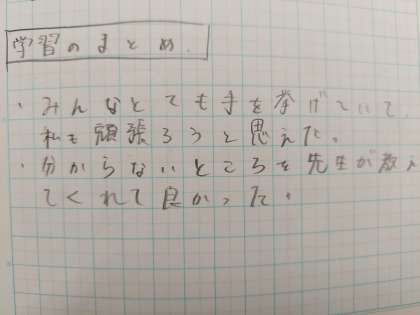 学習のまとめ.
・みんなとても手を挙げていて、
私も頑張ろうと思えた。
・分からないところを先生が教え
てくれて良かった。